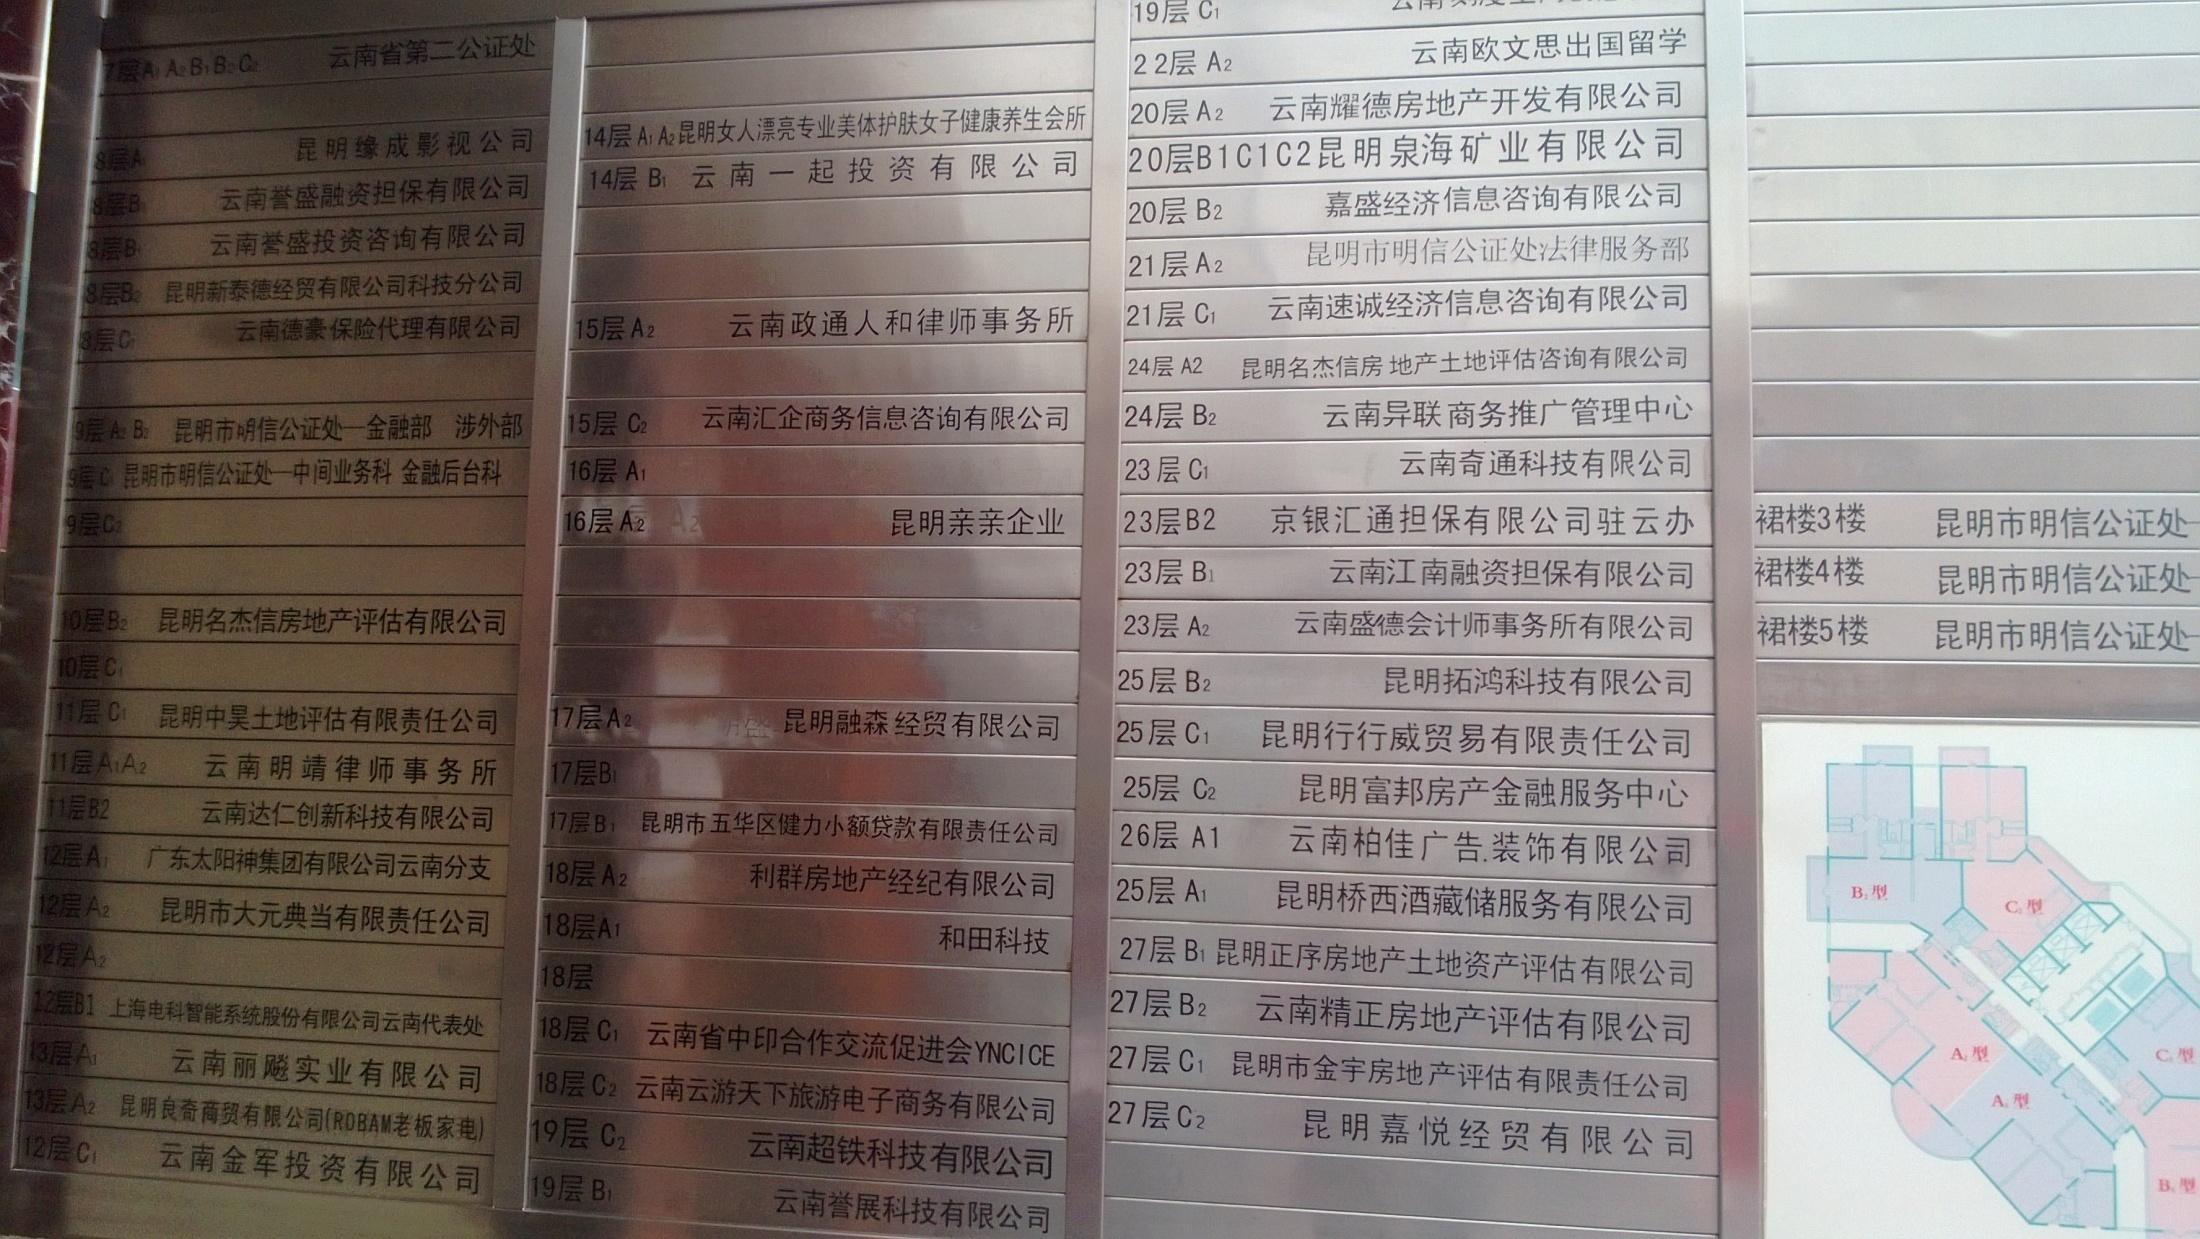 7层A1 A2 B1 B2 C2 云南省第二公证处
8层A1 昆明缘成影视公司
8层B1 云南誉盛融资担保有限公司
8层B1 云南誉盛投资咨询有限公司
8层B2 昆明新泰德经贸有限公司科技分公司
8层C1 云南德豪保险代理有限公司
9层A2 B2 昆明市明信公证处—金融部 涉外部
9层C1 昆明市明信公证处—中间业务科 金融后台科
9层C2
10层B2 昆明名杰信房地产评估有限公司
10层C1
11层C1 昆明中昊土地评估有限责任公司
11层A1A2 云南明靖律师事务所
11层B2 云南达仁创新科技有限公司
12层A1 广东太阳神集团有限公司云南分支
12层A2 昆明市大元典当有限责任公司
12层A2
12层B1 上海电科智能系统股份有限公司云南代表处
13层A1 云南丽飚实业有限公司
13层A2 昆明良奇商贸有限公司(ROBAM老板家电)
12层C1 云南金军投资有限公司
14层A1 A2 昆明女人漂亮专业美体护肤女子健康养生会所
14层B1 云南一起投资有限公司
15层A2 云南政通人和律师事务所
15层C2 云南汇企商务信息咨询有限公司
16层A1
16层A2 昆明亲亲企业
17层A2 昆明融森经贸有限公司
17层B1
17层B1 昆明市五华区健力小额贷款有限责任公司
18层A2 利群房地产经纪有限公司
18层A1 和田科技
18层
18层C1 云南省中印合作交流促进会YNCICE
18层C2 云南云游天下旅游电子商务有限公司
19层C2 云南超铁科技有限公司
19层B1 云南誉展科技有限公司
19层C1
22层A2 云南欧文思出国留学
20层A2 云南耀德房地产开发有限公司
20层B1C1C2昆明泉海矿业有限公司
20层B2 嘉盛经济信息咨询有限公司
21层A2 昆明市明信公证处法律服务部
21层C1 云南速诚经济信息咨询有限公司
24层A2 昆明名杰信房地产土地评估咨询有限公司
24层B2 云南异联商务推广管理中心
23层C1 云南奇通科技有限公司
23层B2 京银汇通担保有限公司驻云办
23层B1 云南江南融资担保有限公司
23层A2 云南盛德会计师事务所有限公司
25层B2 昆明拓鸿科技有限公司
25层C1 昆明行行威贸易有限责任公司
25层C2 昆明富邦房产金融服务中心
26层A1 云南柏佳广告.装饰有限公司
25层A1 昆明桥西酒藏储服务有限公司
27层B1 昆明正序房地产土地资产评估有限公司
27层B2 云南精正房地产评估有限公司
27层C1 昆明市金宇房地产评估有限责任公司
27层C2 昆明嘉悦经贸有限公司
裙楼3楼 昆明市明信公证处—
裙楼4楼 昆明市明信公证处—
裙楼5楼 昆明市明信公证处—
B1型
C2型
A2型
C1型
A1型
B2型